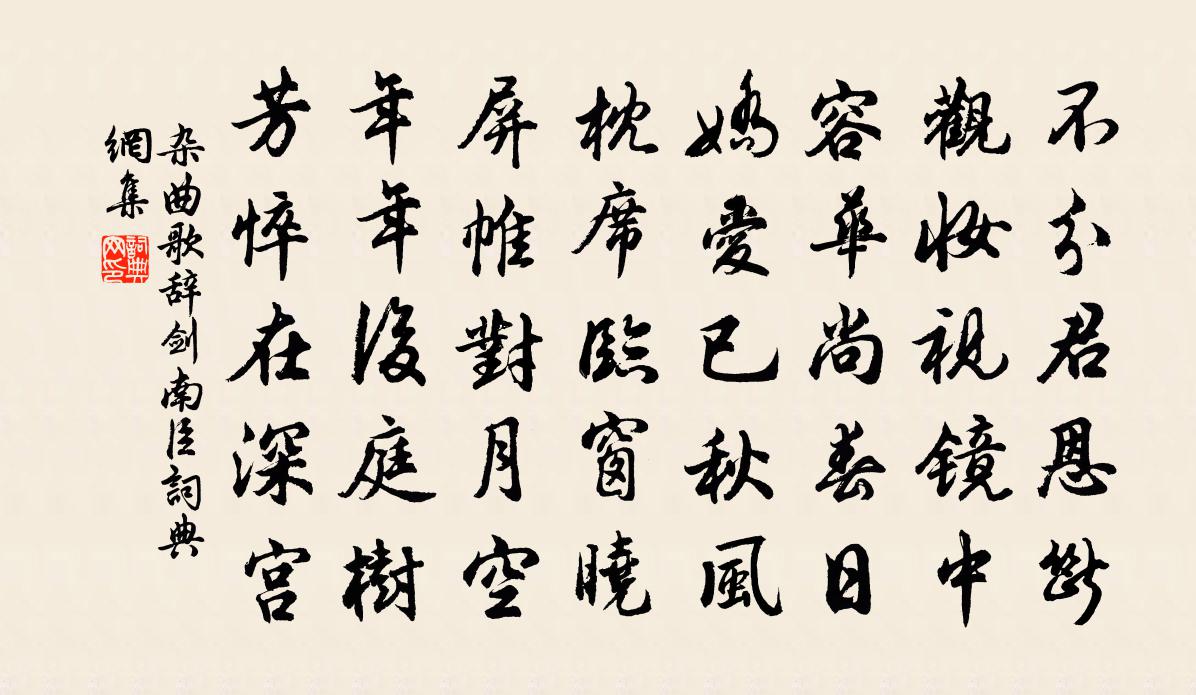 不分君恩斷
觀妝視鏡中
容華尚春日
嬌愛已秋風
枕席臨窗曉
屏帷對月空
年年後庭樹
芳悴在深宮
杂曲歌辞剑南臣詞典
網集
詞典
网印